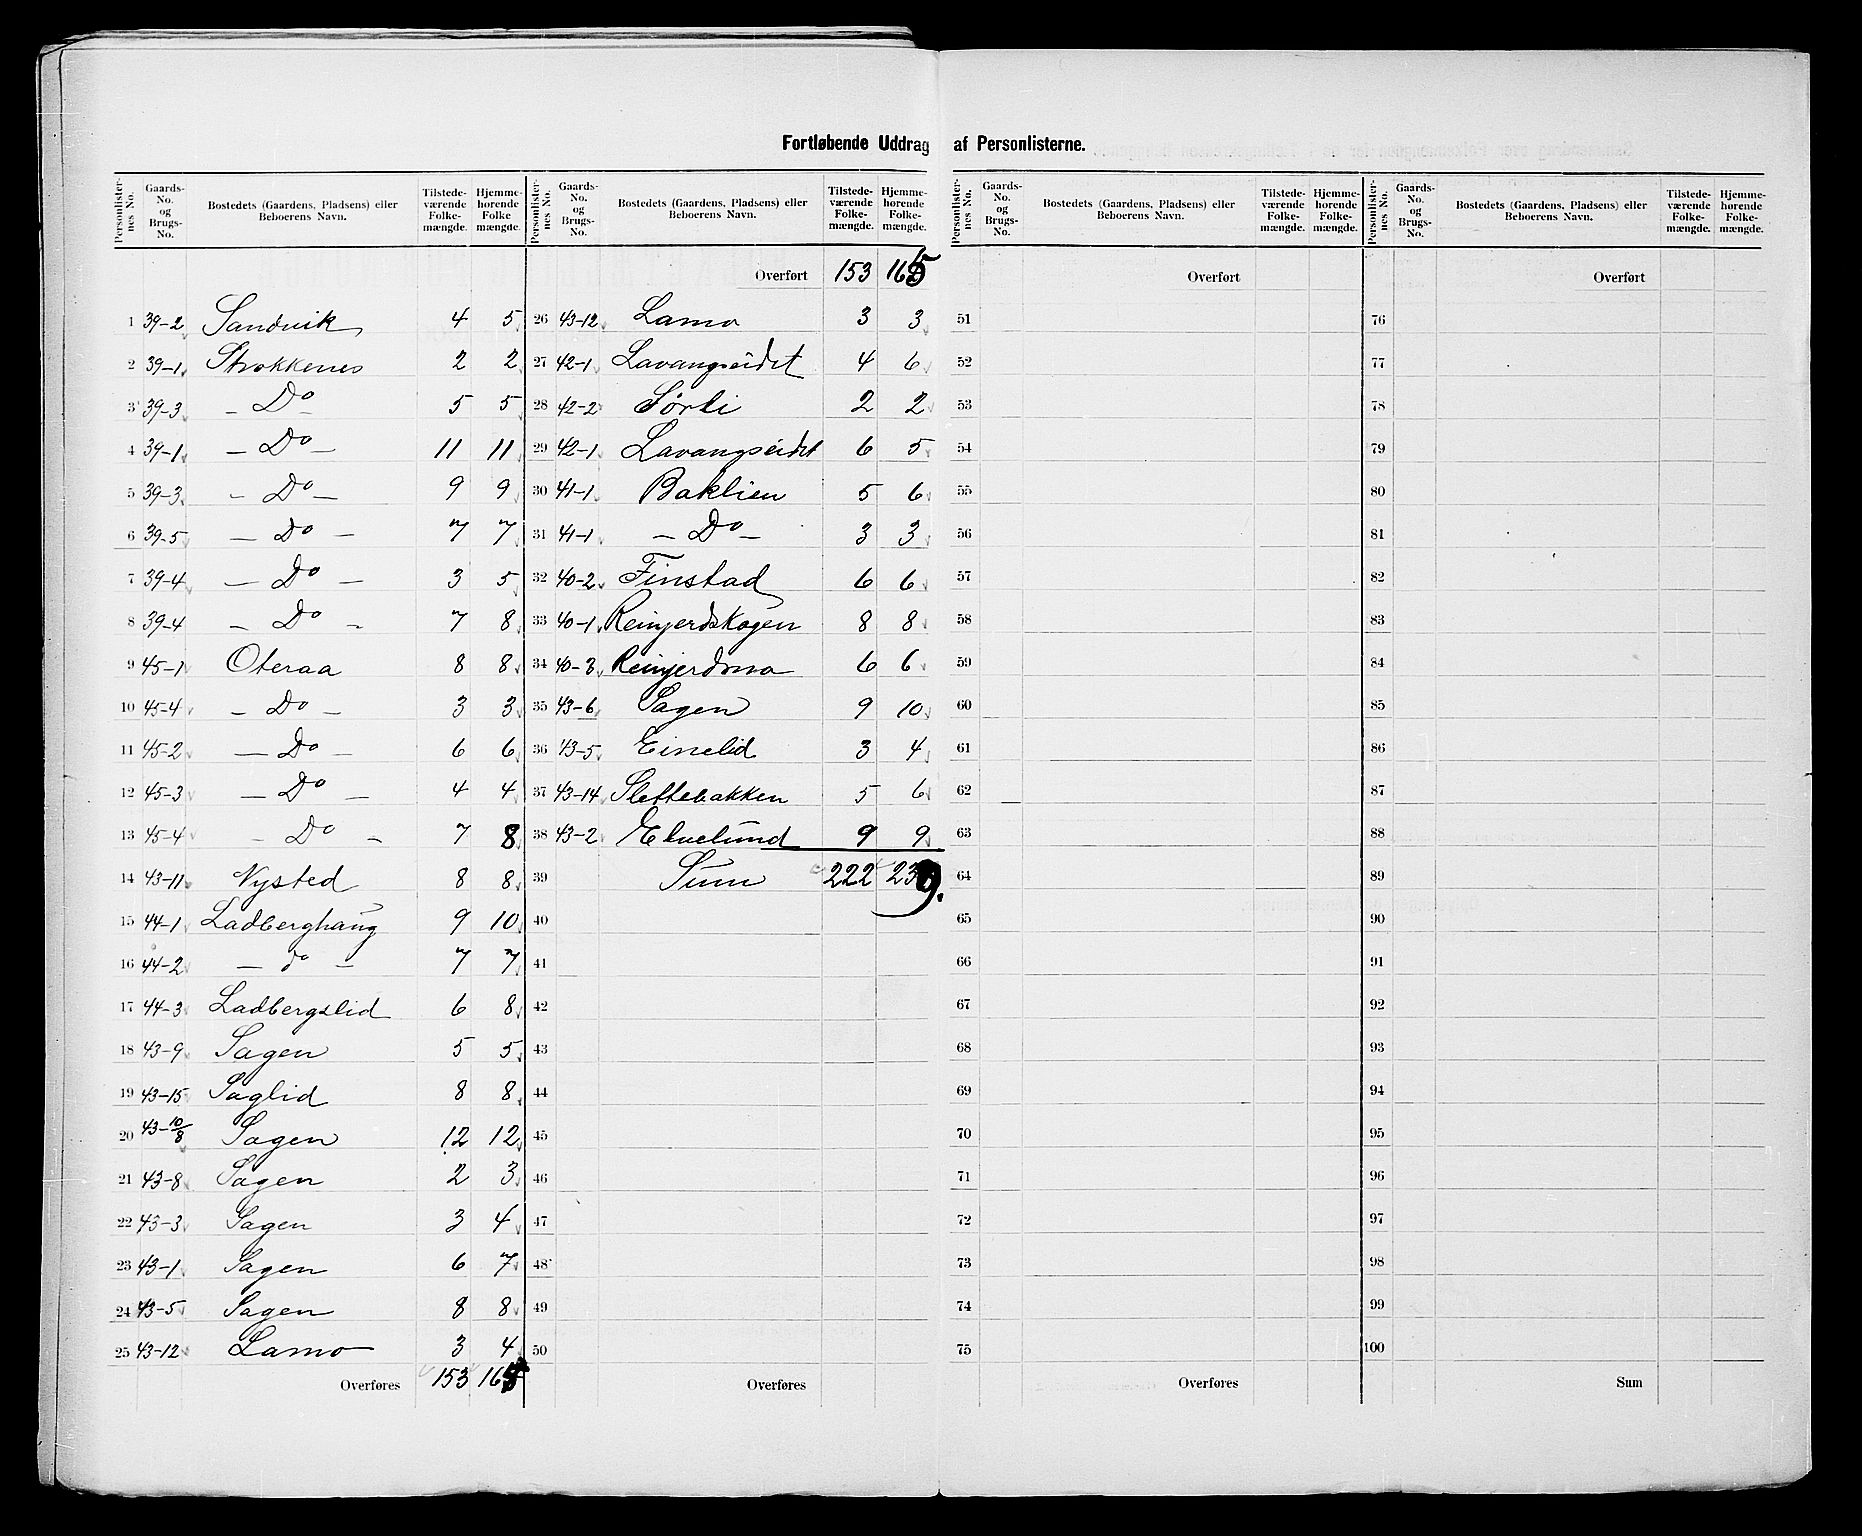 Fortløbende Uddrag af Personlisterne.
Personlister-nes No. Gaards-No. og Brugs-No. Bostedets (Gaardens, Pladsens) eller Beboerens Navn. Tilstede-værende Folke-mængde. Hjemme-hørende Folke mængde.
1 39-2 Sandvik 4 5
2 39-1 Strokkenes 2 2
3 39-3 - Do - 5 5
4 39-1 - Do - 11 11
5 39-3 - Do - 9 9
6 39-5 - Do - 7 7
7 39-4 - Do - 3 5
8 39-4 - Do - 7 8
9 45-1 Oteraa 8 8
10 45-4 - Do - 3 3
11 45-2 - Do - 6 6
12 45-3 - Do - 4 4
13 45-4 - Do - 7 8
14 43-11 Nysted 8 8
15 44-1 Ladberghaug 9 10
16 44-2 - do - 7 7
17 44-3 Ladbergslid 6 8
18 43-9 Sagen 5 5
19 43-15 Saglid 8 8
20 43-10/8 Sagen 12 12
21 43-8 Sagen 2 3
22 43-3 Sagen 3 4
23 43-1 Sagen 6 7
24 43-5 Sagen 8 8
25 43-12 Lamo 3 4
Overføres 153 165
Personlister-nes No. Gaards-No. og Brugs-No. Bostedets (Gaardens, Pladsens) eller Beboerens Navn. Tilstede-værende Folke-mængde. Hjemme-hørende Folke-mængde.
Overført 153 165
26 43-12 Lamo 3 3
27 42-1 Lavangseidet 4 6
28 42-2 Sørli 2 2
29 42-1 Lavangseidet 6 5
30 41-1 Baklien 5 6
31 41-1 - Do - 3 3
32 40-2 Finstad 6 6
33 40-1 Reinjerdskogen 8 8
34 40-3 Reinjerdmo 6 6
35 43-6 Sagen 9 10
36 43-5 Einelid 3 4
37 43-14 Slettebakken 5 6
38 43-2 Elvelund 9 9
39 Sum 222 239.
40
41
42
43
44
45
46
47
48
49
50
Overføres
Personlister-nes No. Gaards-No. og Brugs-No. Bostedets (Gaardens, Pladsens) eller Beboerens Navn. Tilstede-værende Folke-mængde. Hjemme-hørende Folke-mængde.
Overført
51
52
53
54
55
56
57
58
59
60
61
62
63
64
65
66
67
68
69
70
71
72
73
74
75
Overføres
Personlister-nes No. Gaards-No. og Brugs-No. Bostedets (Gaardens, Pladsens) eller Beboerens Navn. Tilstede-værende Folke-mængde. Hjemme-hørende Folke-mængde.
Overført
76
77
78
79
80
81
82
83
84
85
86
87
88
89
90
91
92
93
94
95
96
97
98
99
100
Sum